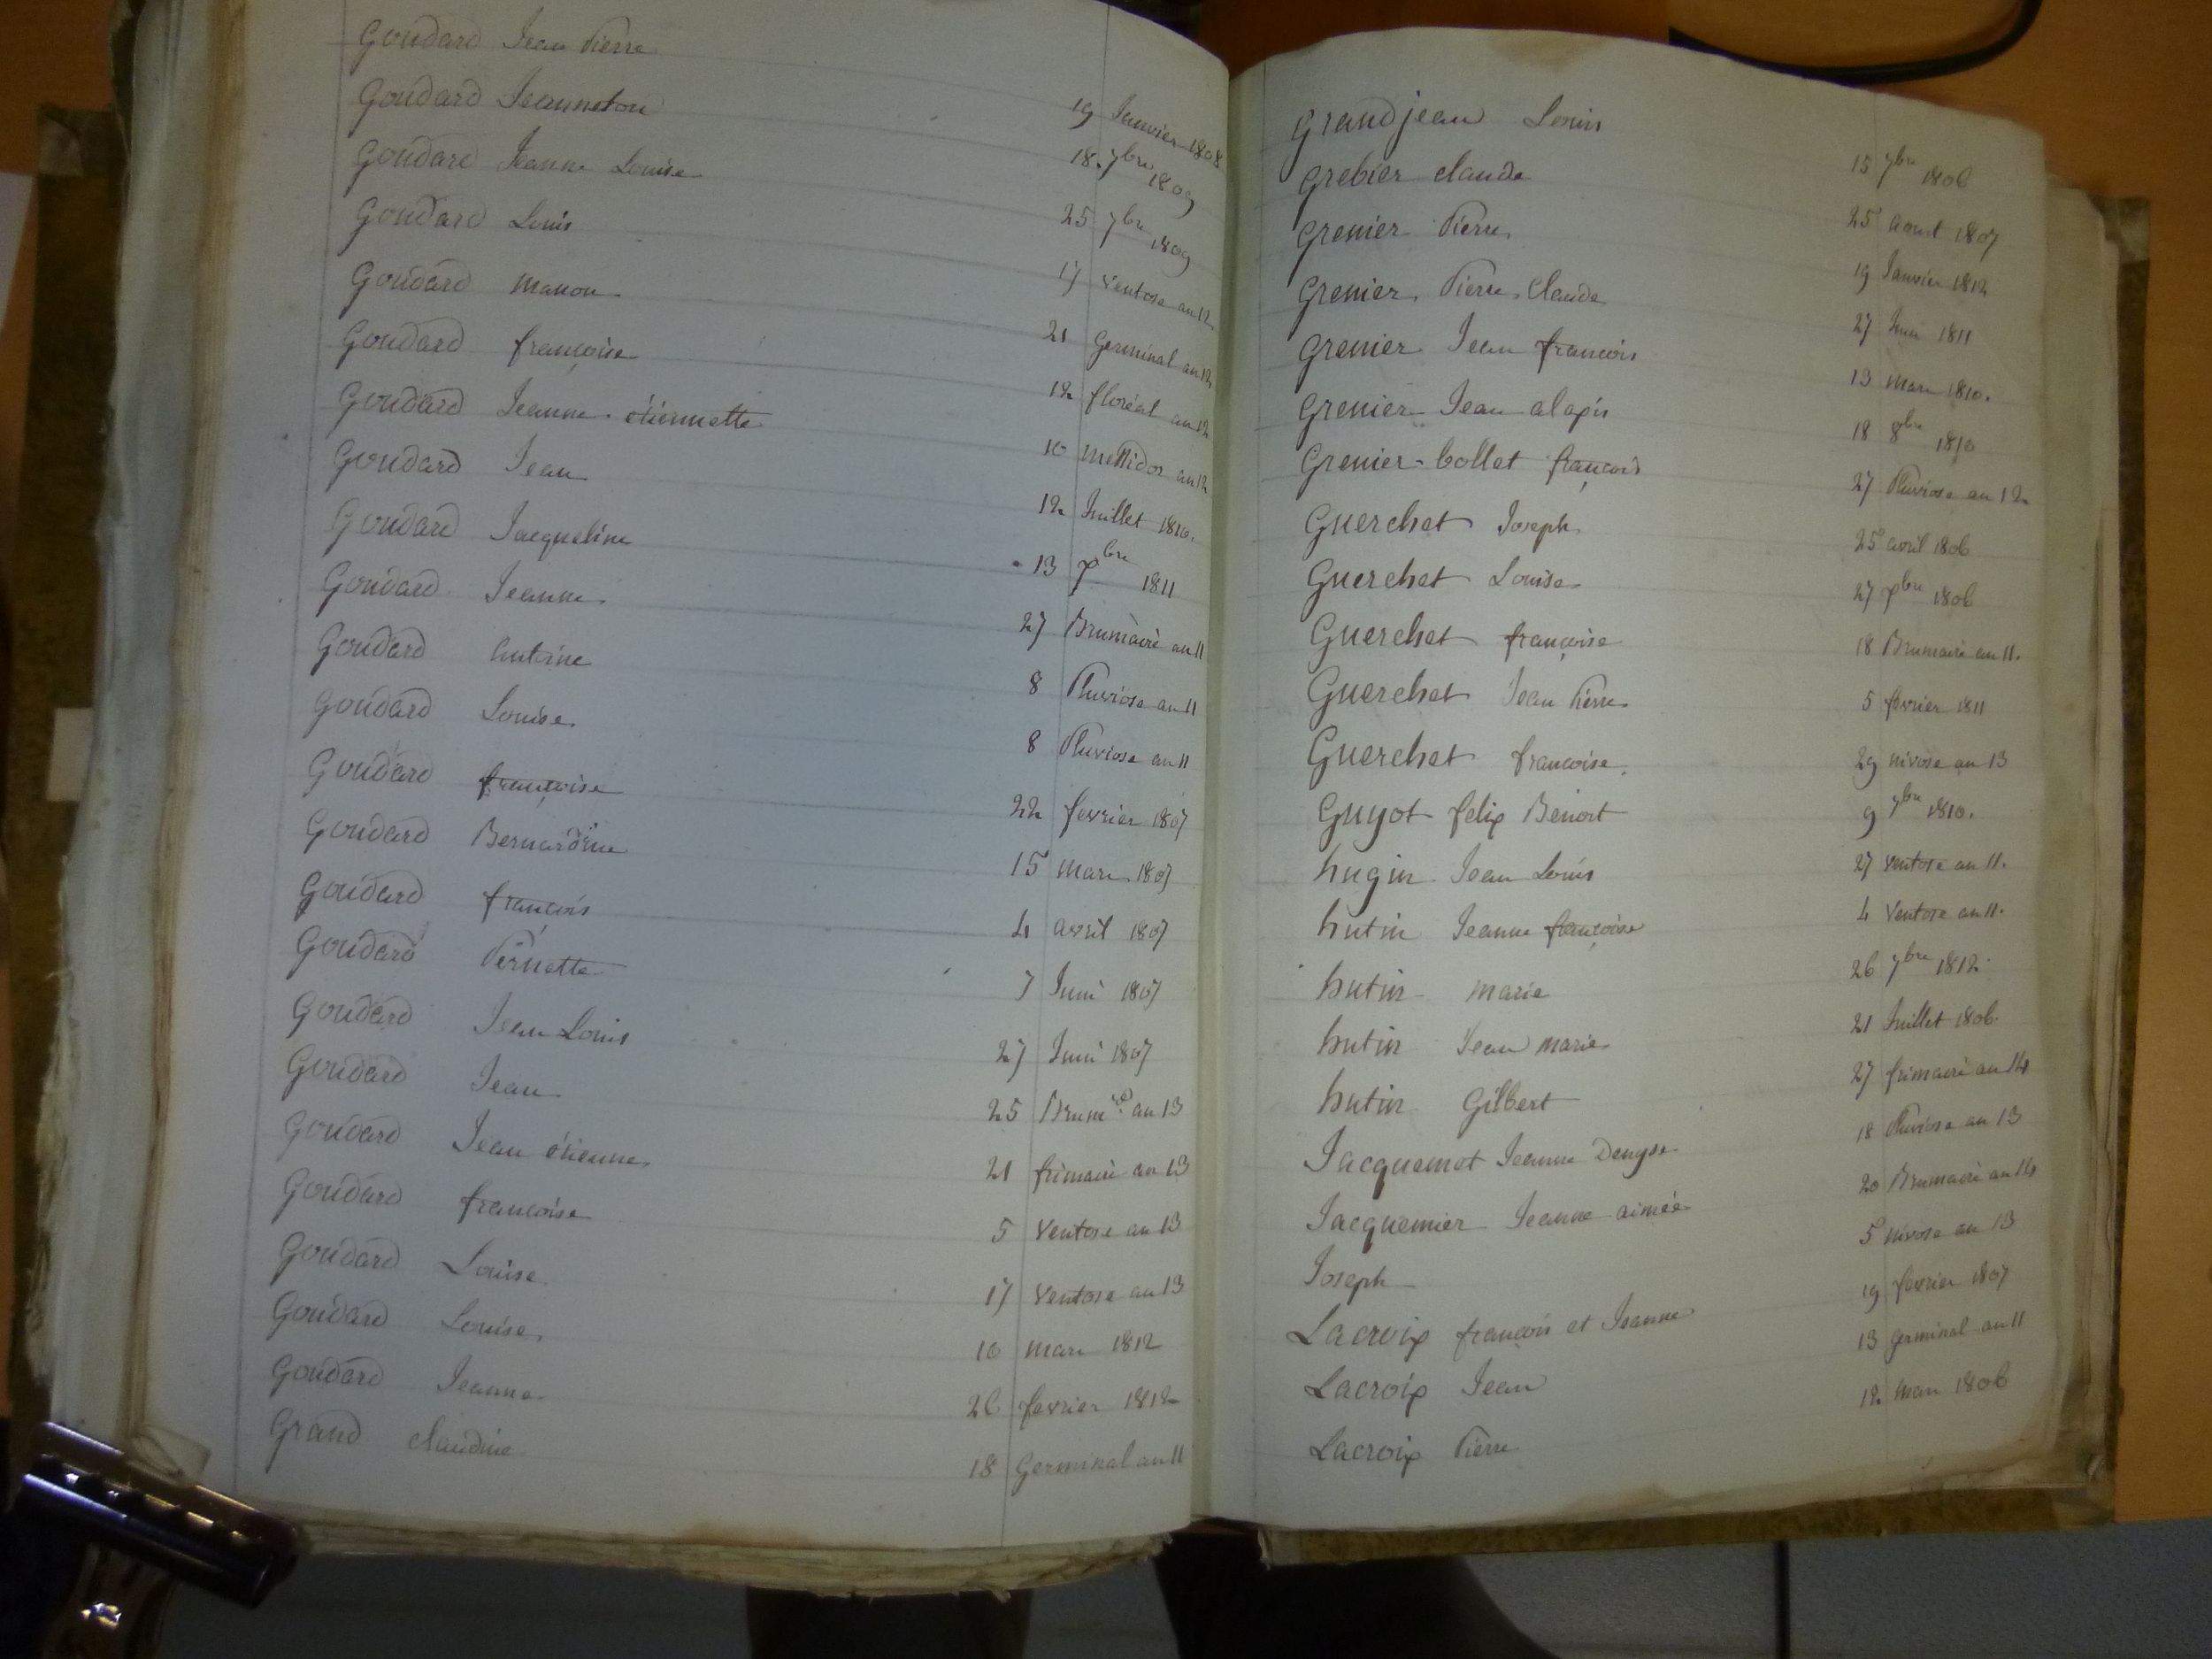 Goudard Jean Pierre 19 Janvier 1808
Goudard Jeanneton 18 7bre 1809
Goudard Jeanne Louise 25 7bre 1809
Goudard Louis 17 Ventose an 12
Goudard manon 21 Germinal an 12
Goudard françoise 12 floréal an 12
Goudard Jeanne étiennette 10 messidor an 12
Goudard Jean 12 Juillet 1810.
Goudard Jacqueline 13 Xbre 1811
Goudard Jeanne 27 Brumaire an 11
Goudard antoine 8 Pluviose an 11
Goudard Louise 8 Pluviose an 11
Goudard françoise 22 fevrier 1807
Goudard Bernardine 15 mars 1807
Goudard françois 4 avril 1807
Goudard Pernette 7 Juin 1807
Goudard Jean Louis 27 Juin 1807
Goudard Jean 25 Brumre an 13
Goudard Jean étienne 21 frimaire an 13
Goudard françoise 5 Ventose an 13
Goudard Louise 17 Ventose an 13
Goudard Louise 10 mars 1812
Goudard Jeanne 26 fevrier 1812
Grand claudine 18 Germinal an 11
Grandjean Louis 15 7bre 1806
Grebier claude 25 aout 1807
Grenier Pierre 19 Janvier 1812
Grenier Pierre Claude 27 Juin 1811
Grenier Jean françois 13 mars 1810.
Grenier Jean alexis 18 8bre 1810
Grenier-bollet françois 27 Pluviose an 12
Guerchet Joseph 25 avril 1806
Guerchet Louise 27 Xbre 1806
Guerchet françoise 18 Brumaire an 11.
Guerchet Jean Pierre 5 fevrier 1811
Guerchet francoise 29 nivose an 13
Guyot felix Benoit 9 9bre 1810.
hugin Jean Louis 27 ventose an 11.
hutin Jeanne françoise 4 Ventose an 11.
hutin marie 26 7bre 1812
hutin Jean marie 21 Juillet 1806
hutin Gilbert 27 frimaire an 14
Jacquemot Jeanne Denyse 18 Pluviose an 13
Jacquemier Jeanne aimée 20 Brumaire an 14
Joseph 5 nivose an 13
Lacroix françois et Jeanne 19 fevrier 1807
Lacroix Jean 13 germinal an 11
Lacroix Pierre 12 mars 1806